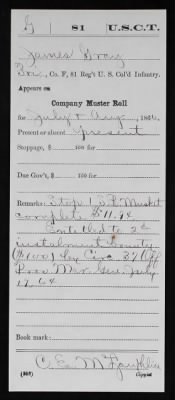 G | 81 | U.S.C.T.
James Gray
Co. F, 81 Reg't U. S. Col'd Infantry.
Appears on
Company Muster Roll
for July & Aug, 1864.
Present or absent Present
Stoppage, $ 100 for
Due Gov't, $ 100 for
Remarks: Stop 1 S. R. Musket
complete $11.94
Entitled to 2d
instalment bounty
($100) by Circ. 37 Off
Prov. Mar. Gen. July
19, 64
Book mark:
C. E. McLaughlin
(357) Copyist.